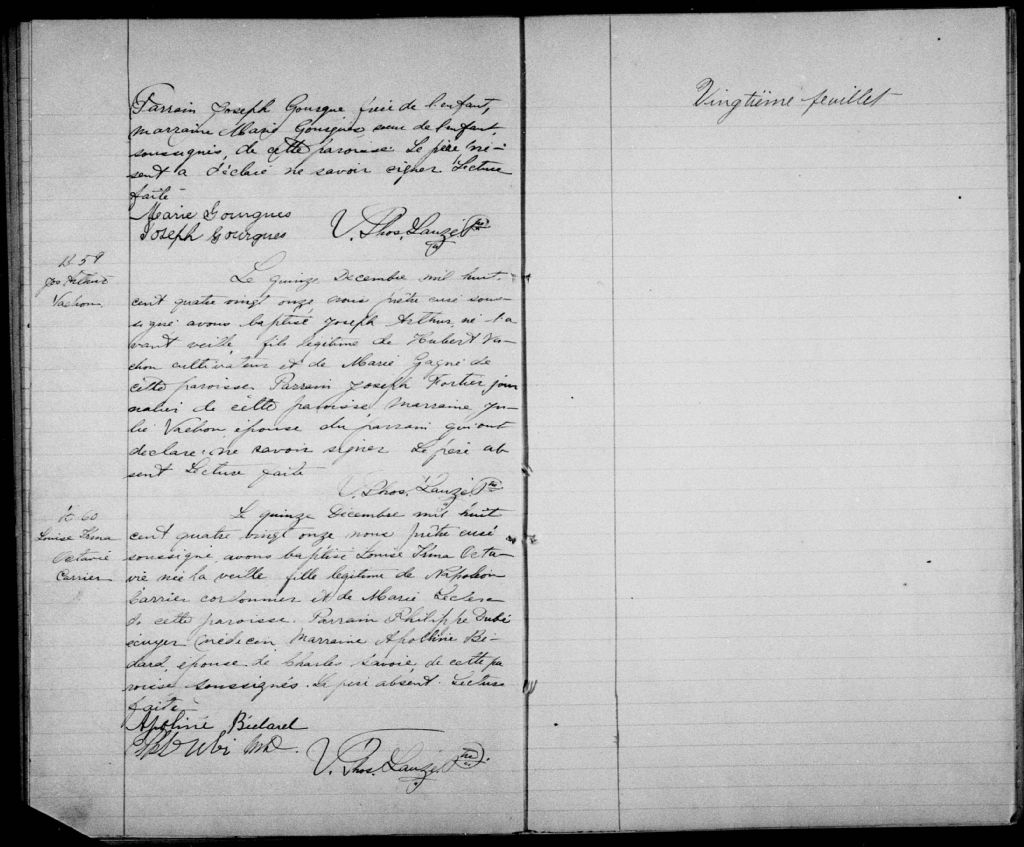 Parrain Joseph Gourgue frère de l'enfant,
marraine Marie Gourgues, sœur de l'enfant,
soussignés, de cette paroisse. Le père pré-
sent a déclaré ne savoir signer Lecture
faite
Marie Gourgues
Joseph Gourgues V. Thos. Lauzé Ptre
B. 59
Jos Arthur
Vachon
Le quinze Décembre mil huit
cent quatre vingt onze nous prêtre curé sous-
signé avons baptisé Joseph Arthur, né l'a
vant veille, fils légitime de Hubert Va-
chon cultivateur et de Marie Gagné de
cette paroisse. Parrain Joseph Fortier jour
nalier de cette paroisse marraine Ju-
lie Vachon épouse du parrain qui ont
déclaré ne savoir signer Le père ab
sent Lecture faite
V. Thos. Lauzé Ptre
B. 60
Louise Irma
Octavie
Carrier
Le quinze Décembre mil huit
cent quatre vingt onze nous prêtre curé
soussigné avons baptisé Louise Irma Octa-
vie née la veille fille légitime de Napoléon
Carrier cordonnier et de Marie Leclerc
de cette paroisse. Parrain Philippe Dubé
écuyer médecin Marraine Apolline Bé-
dard, épouse de Charles Savoie, de cette pa
roisse soussignés. Le père absent. Lecture
faite
Apoline Bédard
Dubé MD.
V. Thos. Lauzé Ptre.
Vingtième feuillet